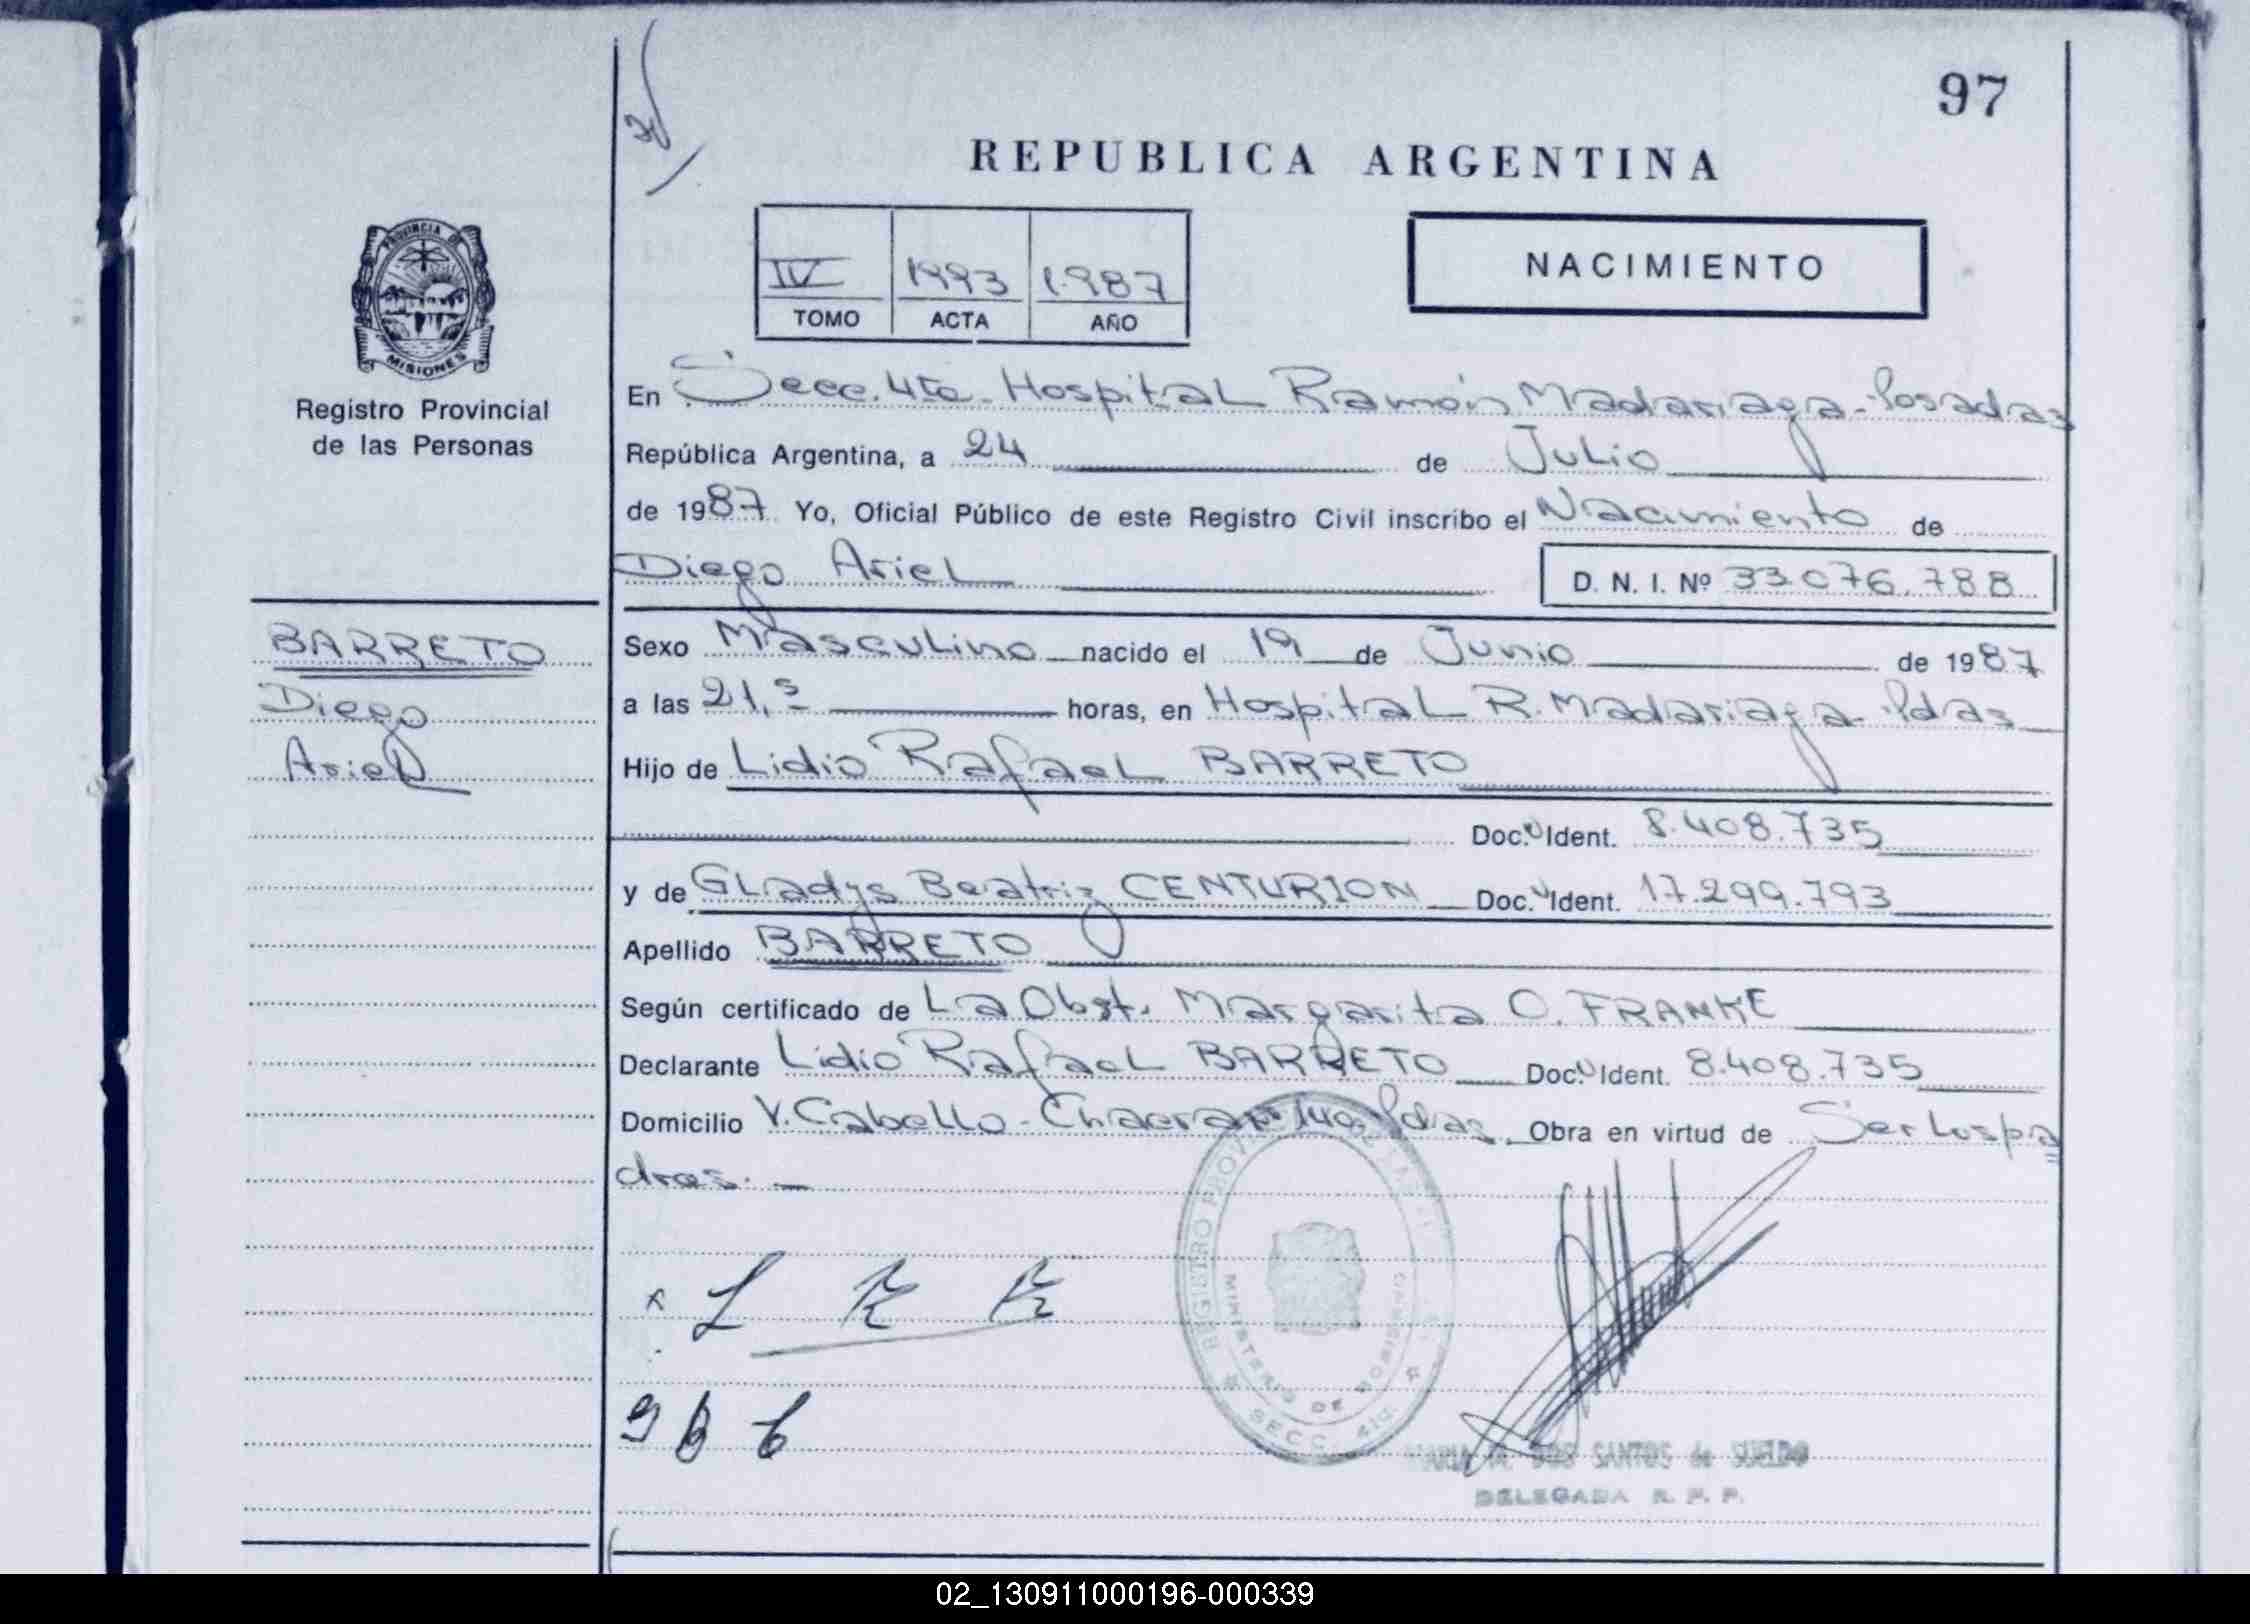 97
REPUBLICA ARGENTINA
IV 1993 1.987
TOMO ACTA AÑO
NACIMIENTO
PROVINCIA DE
MISIONES
Registro Provincial
de las Personas
En Secc. 4ta - Hospital Ramón Madariaga - Posadas
República Argentina, a 24 de Julio
de 1987 Yo, Oficial Público de este Registro Civil inscribo el Nacimiento de
Diego Ariel D. N. I. Nº 33.076.788
BARRETO
Diego
Ariel
Sexo Masculino nacido el 19 de Junio de 1987
a las 21,5 horas, en Hospital R. Madariaga - Pdas
Hijo de Lidio Rafael BARRETO
Doc. Ident. 8.408.735
y de Gladys Beatriz CENTURION Doc. Ident. 17.299.793
Apellido BARRETO
Según certificado de La Obst. Margarita O. FRANKE
Declarante Lidio Rafael BARRETO Doc. Ident. 8.408.735
Domicilio V. Cabello - Chacra Pdas Obra en virtud de Ser los pa
dres. -
REGISTRO PROV
MINISTERIO DE GOBIERNO
SECC. 4ta.
L R B
G B C
MARIA DOS SANTOS de SUELDO
DELEGADA R. P. P.
02_130911000196-000339